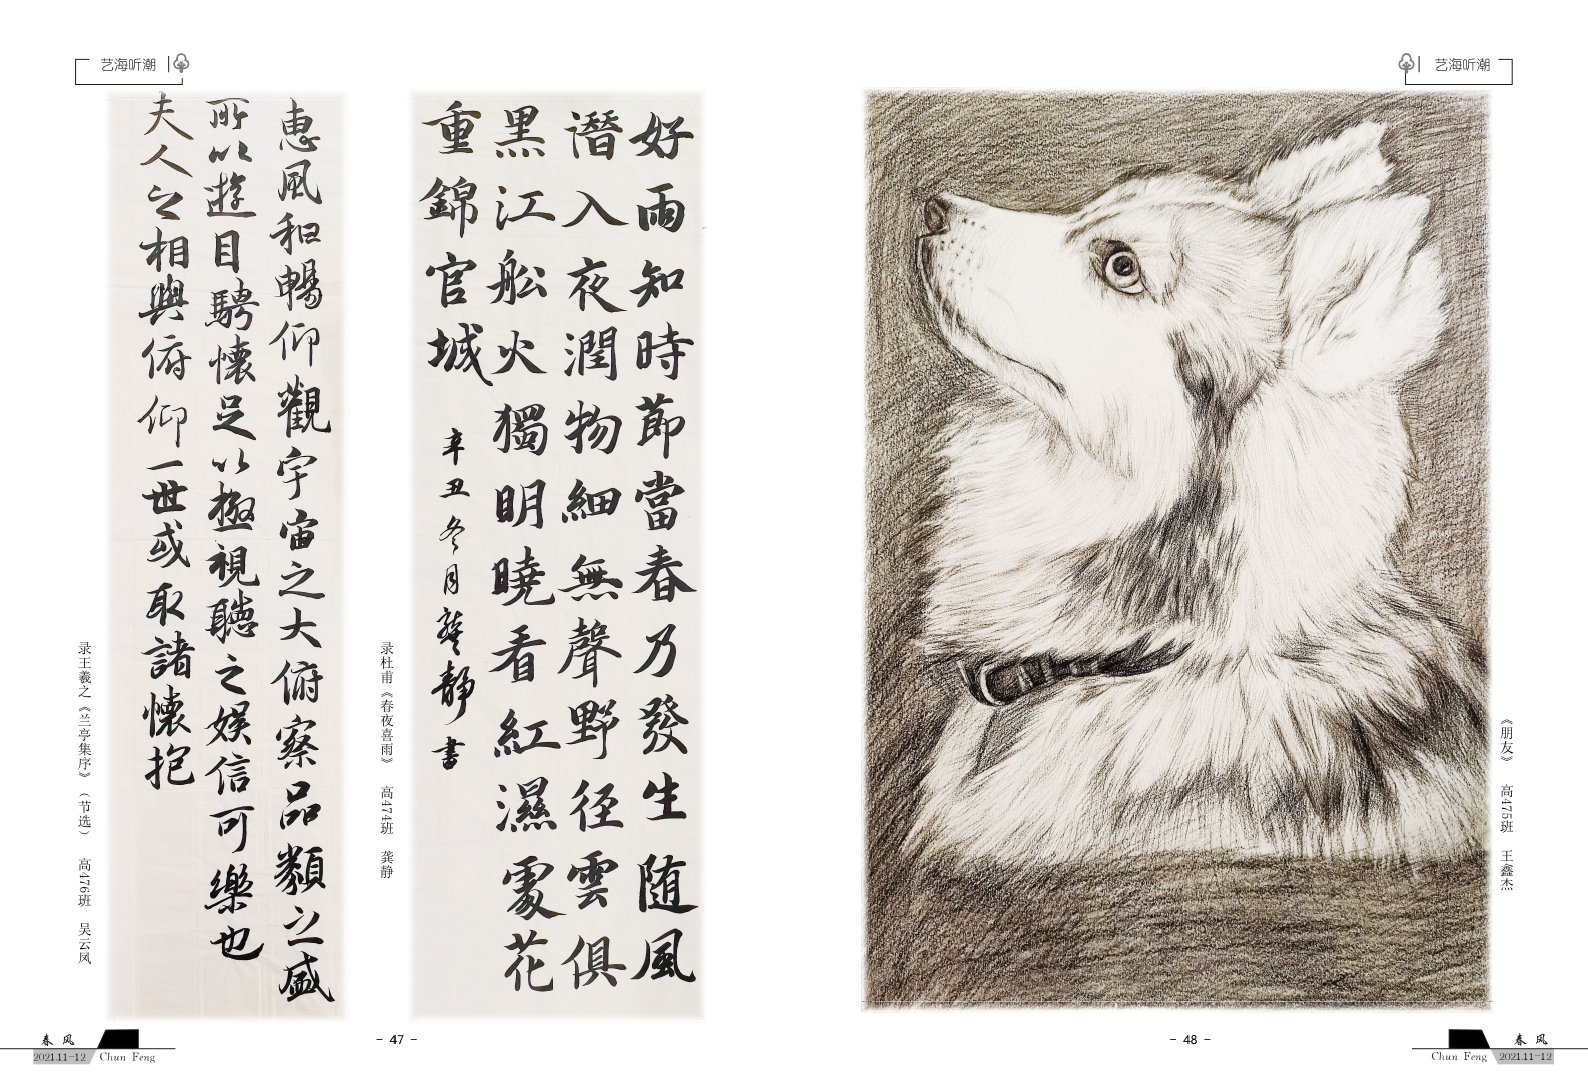 艺海听潮
惠風和暢仰觀宇宙之大俯察品類之盛
所以遊目騁懷足以極視聽之娛信可樂也
夫人之相與俯仰一世或取諸懷抱
录王羲之《兰亭集序》（节选） 高476班 吴云凤
好雨知時節當春乃發生随風
潛入夜潤物細無聲野径雲俱
黑江船火獨明曉看紅濕處花
重錦官城
辛丑冬月龔靜書
录杜甫《春夜喜雨》 高474班 龚静
春风
2021.11-12 Chun Feng
- 47 -
艺海听潮
《朋友》 高475班 王鑫杰
- 48 -
春风
Chun Feng 2021.11-12